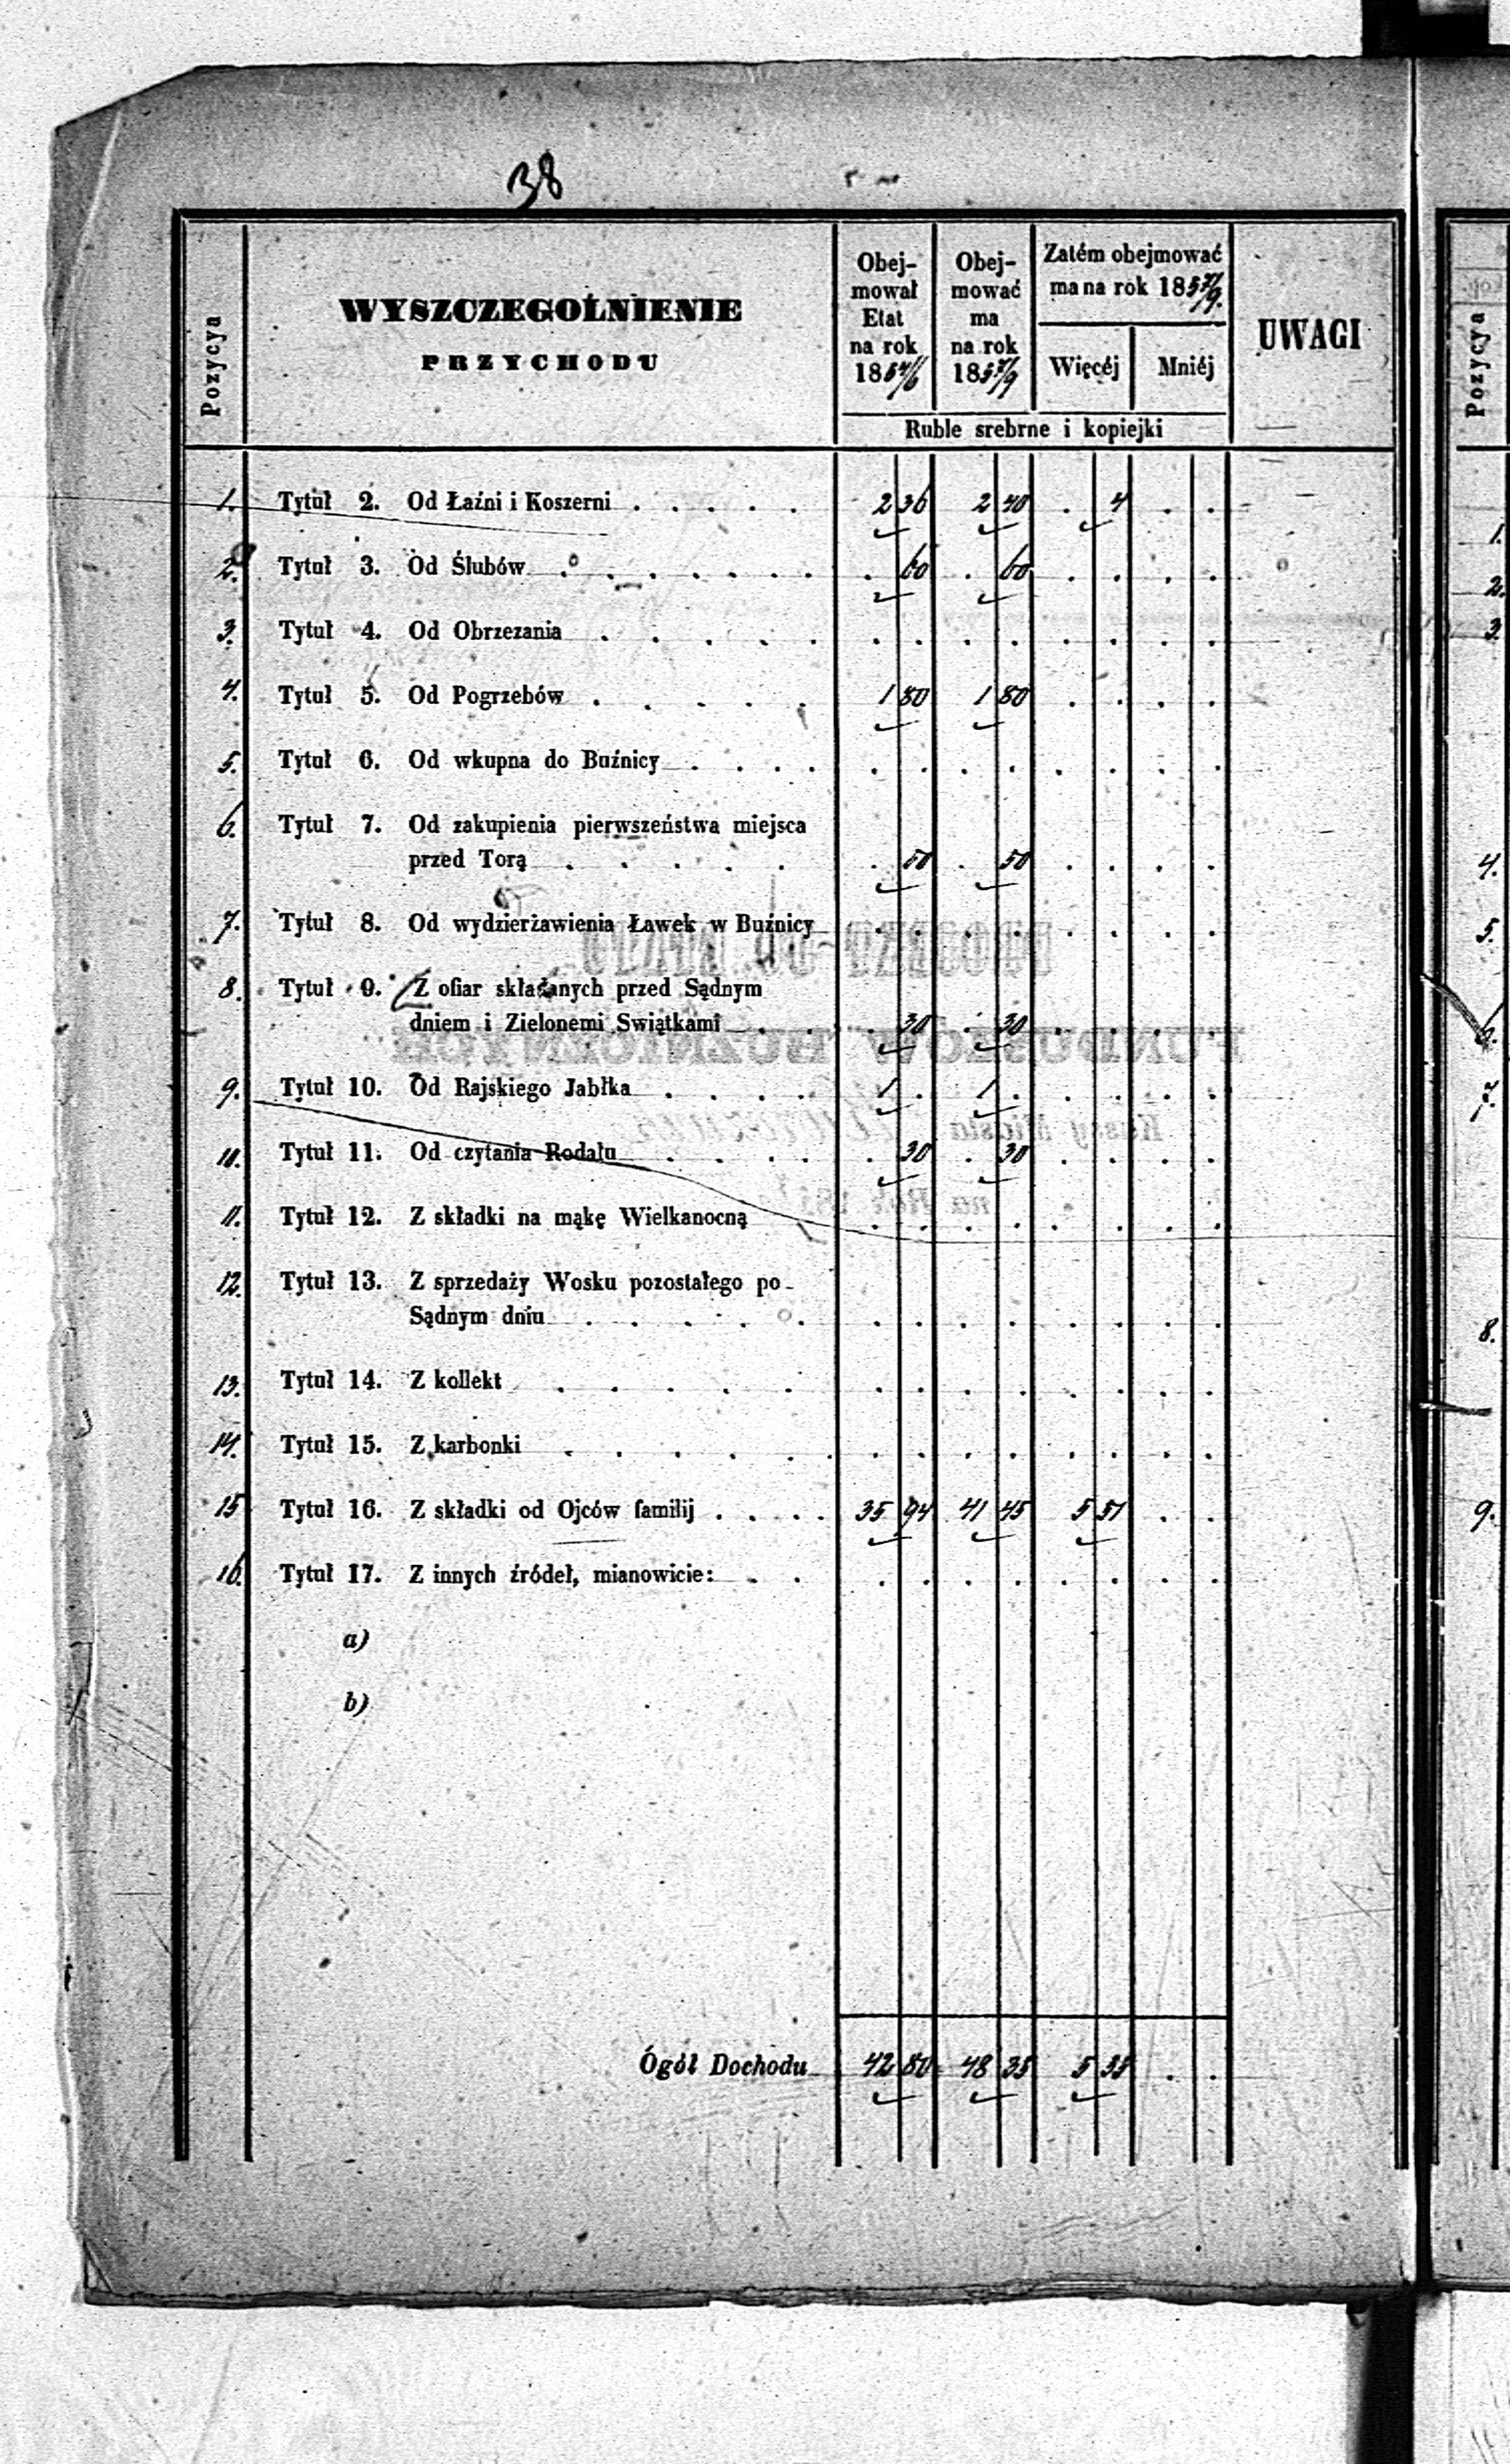 38
Pozycya
WYSZCZEGOLNIENIE
PRZYCHODU
Obej-
mował
Etat
na rok
1854/6
Obej-
mować
ma
na rok
1857/9
Zatém obejmować
ma na rok 1857/9.
Więcéj
Mniéj
UWAGI
Ruble srebrne i kopiejki
1. Tytuł 2. Od Łaźni i Koszerni . . . . . 2 36 2 40 . 4 . .
2. Tytuł 3. Od Ślubów . . . . . . . 60 . 60 . . . .
3. Tytuł 4. Od Obrzezania . . . . . . . . . . . . .
4. Tytuł 5. Od Pogrzebów . . . . . 1 80 1 80 . . . .
5. Tytuł 6. Od wkupna do Buźnicy . . . . . . . . . . . .
6. Tytuł 7. Od zakupienia pierwszeństwa miejsca
przed Torą . . . . . . 50 . 50 . . . .
7. Tytuł 8. Od wydzierżawienia Ławek w Buźnicy . . . . . . . .
8. Tytuł 9. Z ofiar składanych przed Sądnym
dniem i Zielonemi Swiątkami . . . 30 . 30 . . . .
9. Tytuł 10. Od Rajskiego Jabłka . . . . 1 . 1 . . . . .
10. Tytuł 11. Od czytania Rodału . . . . . 30 . 30 . . . .
11. Tytuł 12. Z składki na mąkę Wielkanocną . . . . . . . .
12. Tytuł 13. Z sprzedaży Wosku pozostałego po
Sądnym dniu . . . . . . . . . . . . .
13. Tytuł 14. Z kollekt . . . . . . . . . . . . .
14. Tytuł 15. Z karbonki . . . . . . . . . . . . . .
15 Tytuł 16. Z składki od Ojców familij . . . . 35 94 41 45 5 51 . .
16. Tytuł 17. Z innych źródeł, mianowicie: . . . . . . . . . .
a)
b)
Ógół Dochodu 42 80 48 35 5 55 . .
Pozycya
1.
2.
3.
4.
5.
7.
8.
9.